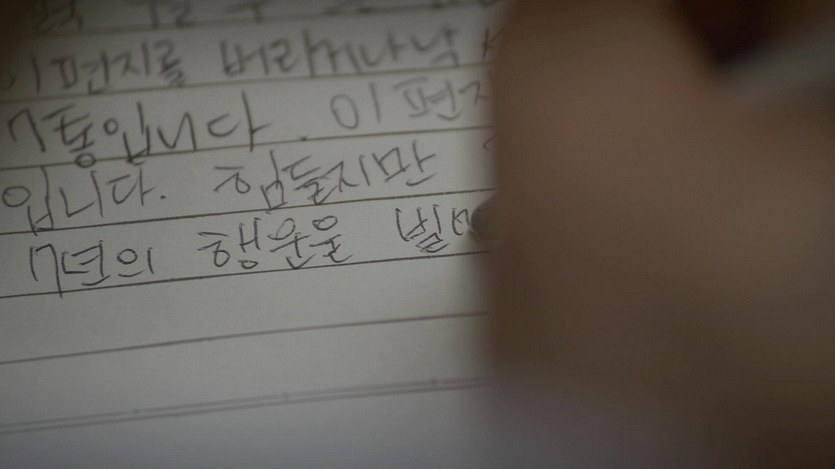 이 편지를 버리거나 낙
7통입니다. 이 편지
입니다. 힘들지만
7년의 행운을 빌면